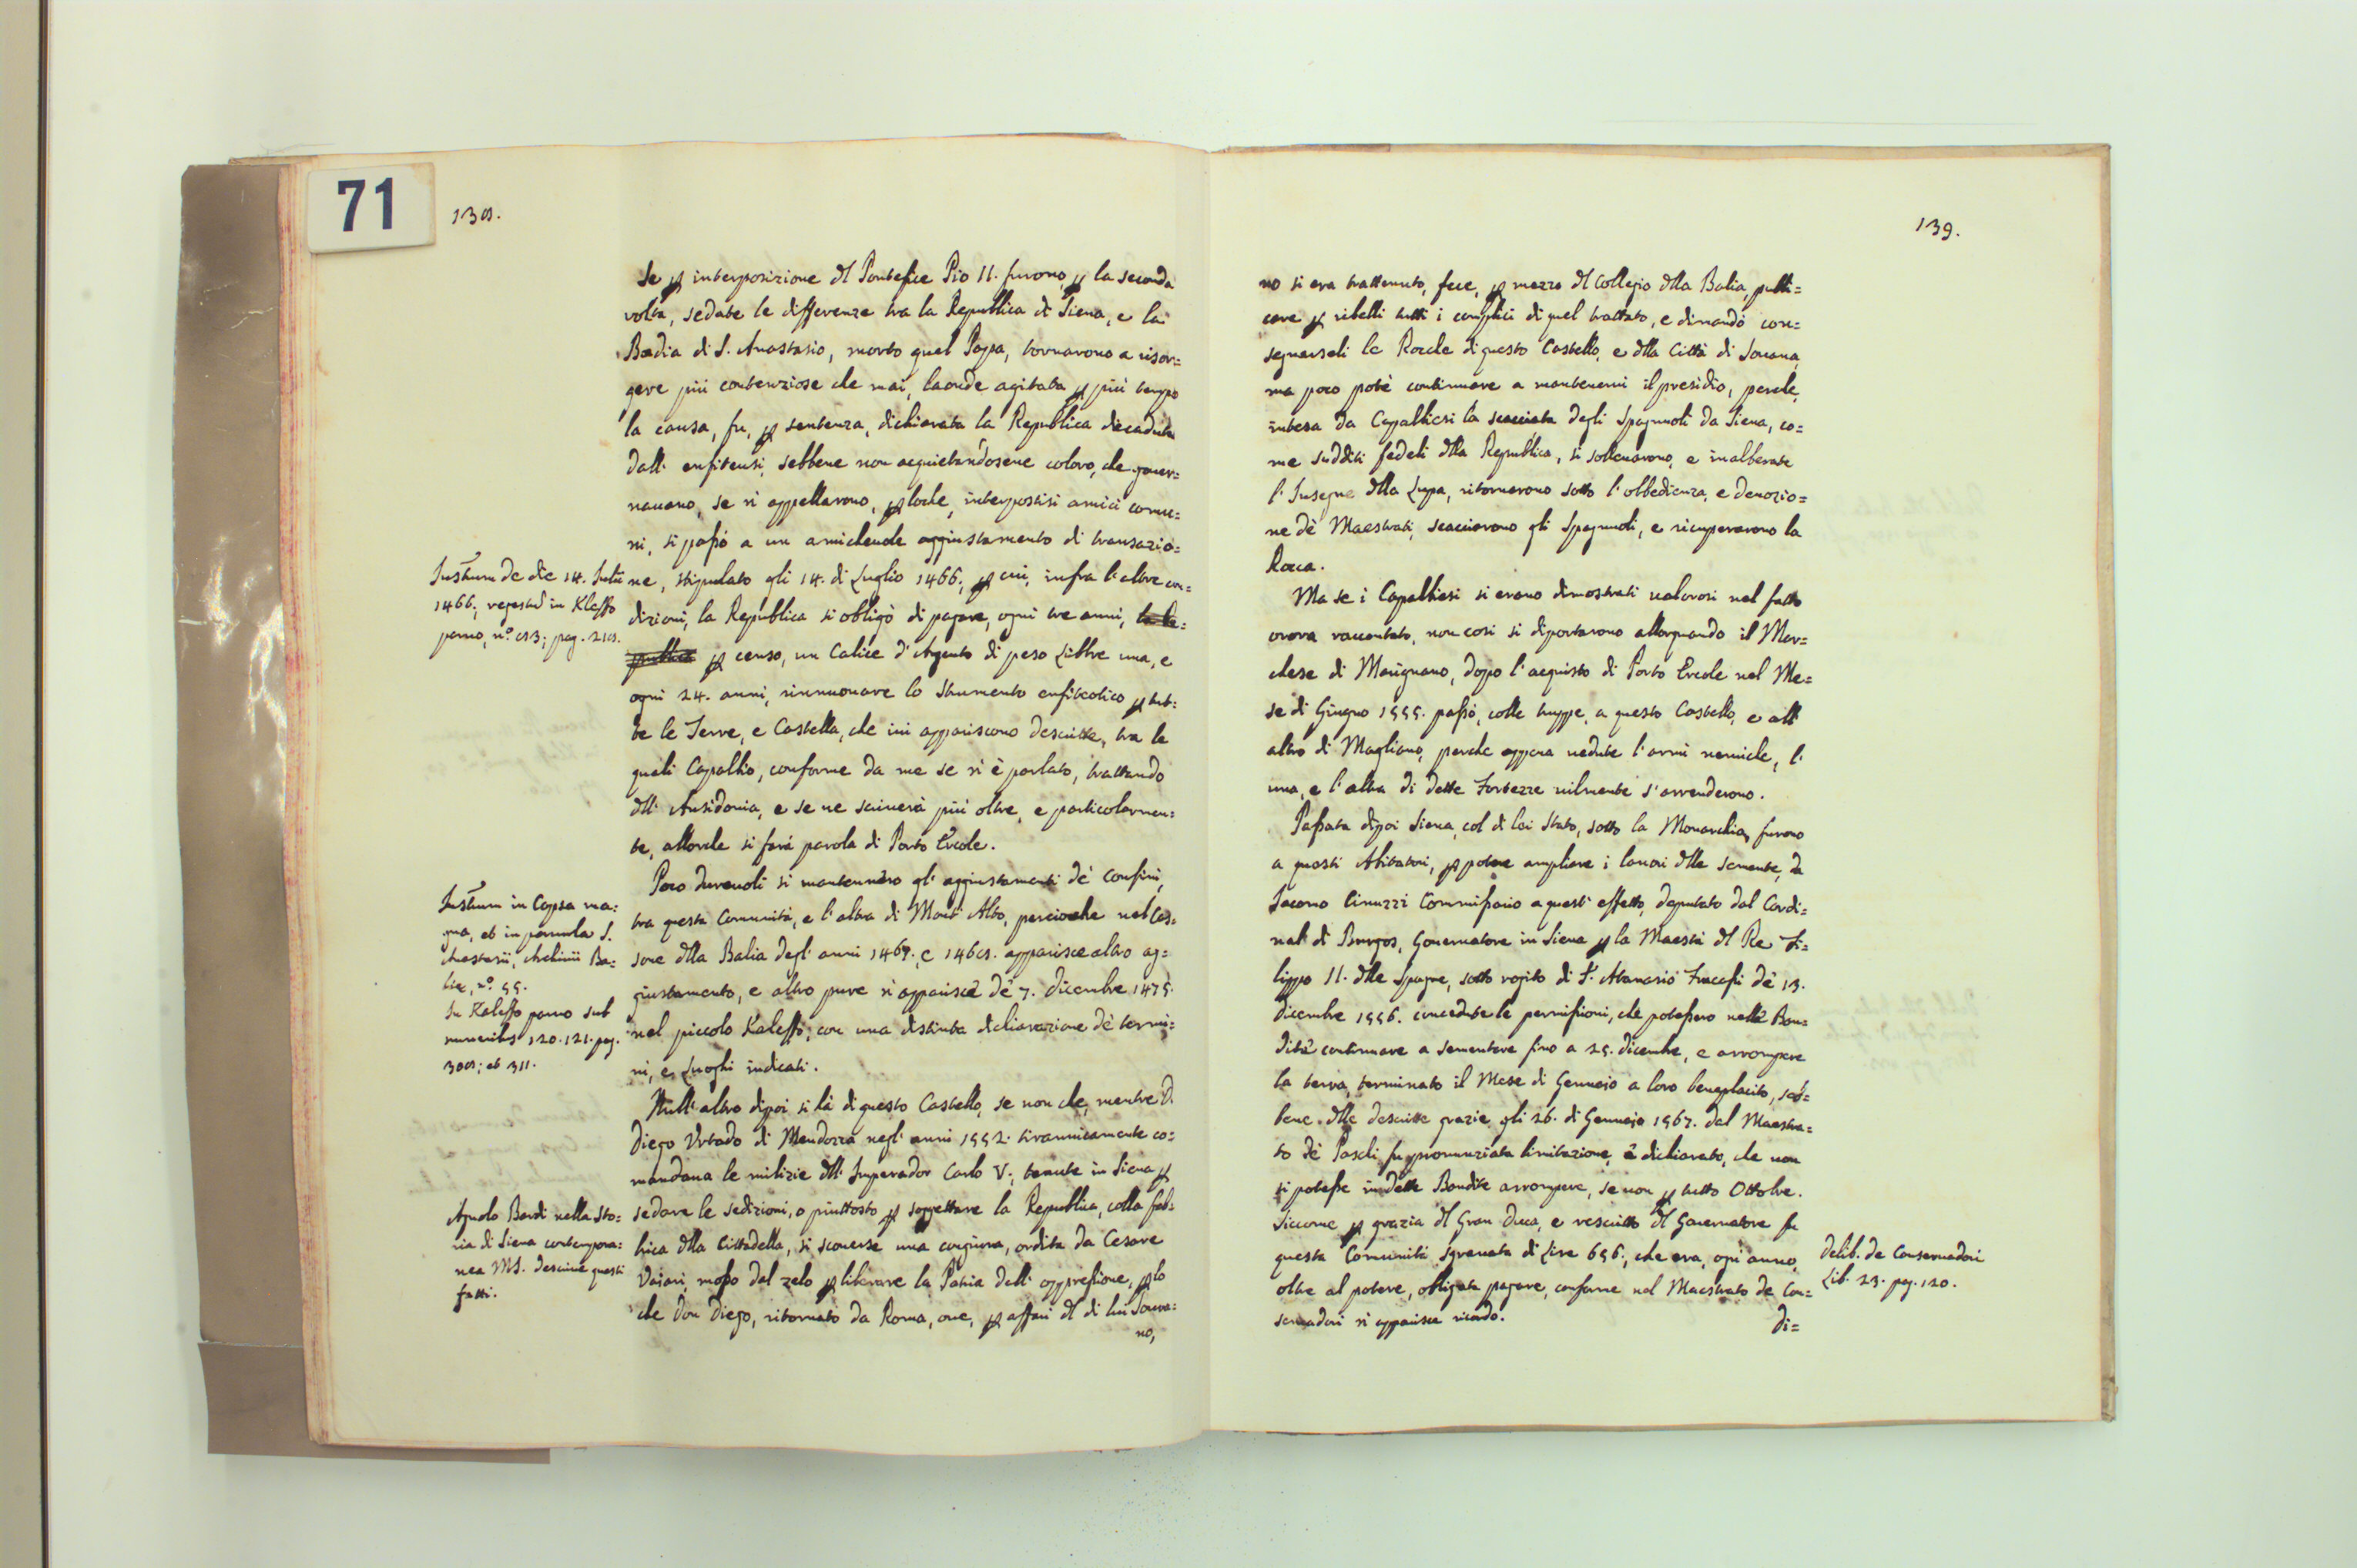 71
138.
Se p interposizione dl Pontefice Pio II. furono, p la seconda
volta, sedate le differenze tra la Republica di Siena, e la
Badia di S. Anastasio, morto quel Papa, tornarono a risor=
gere più contenziose che mai, laonde agitata p più tempo
la causa, fu, p sentenza, dichiarata la Republica decaduta
dall' enfiteusi, sebbene non acquietandosene coloro, che gouer=
nauano, se ñ appellarono, p loche, interpostisi amici comu=
ni, si passò a un amicheuole aggiustamento di transazio=
ne, stipulato gli 14. di Luglio 1466., p cui, infra l'altre con=
dizioni, la Republica si obligò di pagare, ogni tre anni, la Re=
publica p censo, un Calice d'Argento di peso Libbre una, e
ogni 24. anni, rinnuouare lo Strumento enfiteotico p tut=
te le Terre, e Castella, che iui appariscono descritte, tra le
quali Capalbio, conforme da me se ñ è parlato, trattando
dll' Ansidonia, e se ne scriuerà più oltre, e particolarmen=
te, allorche si farà parola di Porto Ercole.
Poco dureuoli si mantennero gl' aggiustamenti de' confini,
tra questa Comunità, e l'altra di Mont' Alto, percioche nel Cas=
sone dlla Balia degl' anni 1467. e 1468. apparisce altro ag=
giustamento, e altro pure ñ apparisce de' 7. Dicembre 1475.
nel piccolo Kaleffo, con una distinta dichiarazione de' termi=
ni, e Luoghi indicati.
Null' altro dipoi si hà di questo Castello, se non che, mentre D.
Diego Urtado di Mendozza negl' anni 1552. tirannicamente co=
mandaua le milizie dll' Imperador Carlo V., tenute in Siena p
sedare le sedizioni, o piuttosto p soggettare la Republica, colla fab=
brica dlla Cittadella, si scouerse una congiura, ordita da Cesare
Vaiari, mosso dal zelo p liberare la Patria dall' oppressione, p lo
che Don Diego, ritornato da Roma, oue, p affari dl di lui Soura=
no,
Instrum de die 14. Julii
1466., regestũ in Kleffo
paruo, nº. 83; pag. 218.
Instrum in Capsa ma=
gna, et in paruula S.
Anastasii, Archiuii Ba=
liæ, nº. 55.
In Kaleffo paruo sub
numeribus 120. 121. pag.
308; et 311.
Agnolo Bardi nella Sto=
ria di Siena contempora=
nea MS. descriue questi
fatti.
139.
no si era trattenuto, fece, p mezzo dl Collegio dlla Balia, publi=
care p ribelli tutti i complici di quel trattato, e dimandò con=
segnarseli le Rocche di questo Castello, e dlla Città di Souana,
ma poco potè continuare a mantenerui il presidio, perche,
intesa da Capalbiesi la scacciata degli Spagnuoli da Siena, co=
me sudditi fedeli dlla Republica, si solleuarono, e inalberate
l'Insegne dlla Lupa, ritornarono sotto l'obbedienza, e deuozio=
ne de' Maestrati, scacciarono gli Spagnuoli, e ricuperarono la
Rocca.
Ma se i Capalbiesi si erano dimostrati ualorosi nel fatto
orora raccontato, non così si diportarono allorquando il Mar=
chese di Marignano, dopo l'acquisto di Porto Ercole nel Me=
se di Giugno 1555. passò, colle truppe, a questo Castello, e all'
altro di Magliano, perche appena uedute l'armi nemiche, l'
una, e l'altra di dette Fortezze uilmente s'arrenderono.
Passata dipoi Siena, col di lei Stato, sotto la Monarchia, furono
a questi Abitatori, p potere ampliare i lauori dlle semente, da
Iacomo Cinuzzi Commissario a questi effetto, deputato dal Cardi=
nal di Burgos, Gouernatore in Siena p la Maestà dl Re Fi=
lippo II. dlle Spagne, sotto rogito di S. Atanasio Fracassi de' 13.
Dicembre 1556. concedute le permissioni, che potessero nelle Ban=
dite continuare a sementare fino a 25. Dicembre, e arrompere
la terra, terminato il Mese di Gennaio a loro beneplacito, seb=
bene dlle descritte grazie gli 26. di Gennaio 1567. dal Maestra=
to de' Paschi fu pronunziata limitazione, e dichiarato, che non
si potesse in dette Bandite arrompere, se non p tutto Ottobre.
Siccome p grazia dl Gran Duca, e rescritto dl Gouernatore fu
questa Comunità sgrauata di Lire 656., che era, ogni anno,
oltre al potere, obligata pagare, conforme nel Maestrato de Con=
seruadori ñ apparisce ricordo.
di=
Delib. de Conseruadori
Lib. 23. pag. 120.